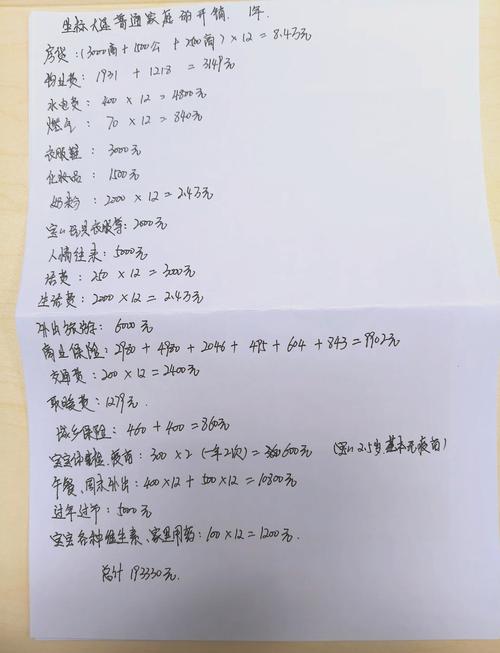 坐标大连普通家庭的开销. 1年.
房贷:(3000商+1500公+2500商)×12=8.4万元
物业费: 1931 + 1218 = 3149元
水电费: 400×12=4800元
燃气: 70×12=840元
衣服鞋: 3000元
化妆品: 1500元
奶粉: 2000×12=2.4万元
宝宝玩具衣服等: 2000元
人情往来: 5000元
话费: 250×12=3000元
生活费: 2000×12=2.4万元
外出旅游: 6000元
商业保险: 2980+4980+2046+495+604+843=9902元
交通费: 200×12=2400元
取暖费: 1279元.
城乡保险: 460+400=860元
宝宝体检、疫苗: 300×2(一年2次)=600元 (宝宝2.5岁基本无疫苗)
午餐、周末外出: 400×12+500×12=10800元
过年过节: 5000元
宝宝各种维生素、家里用药: 100×12=1200元.
总计 193330元.